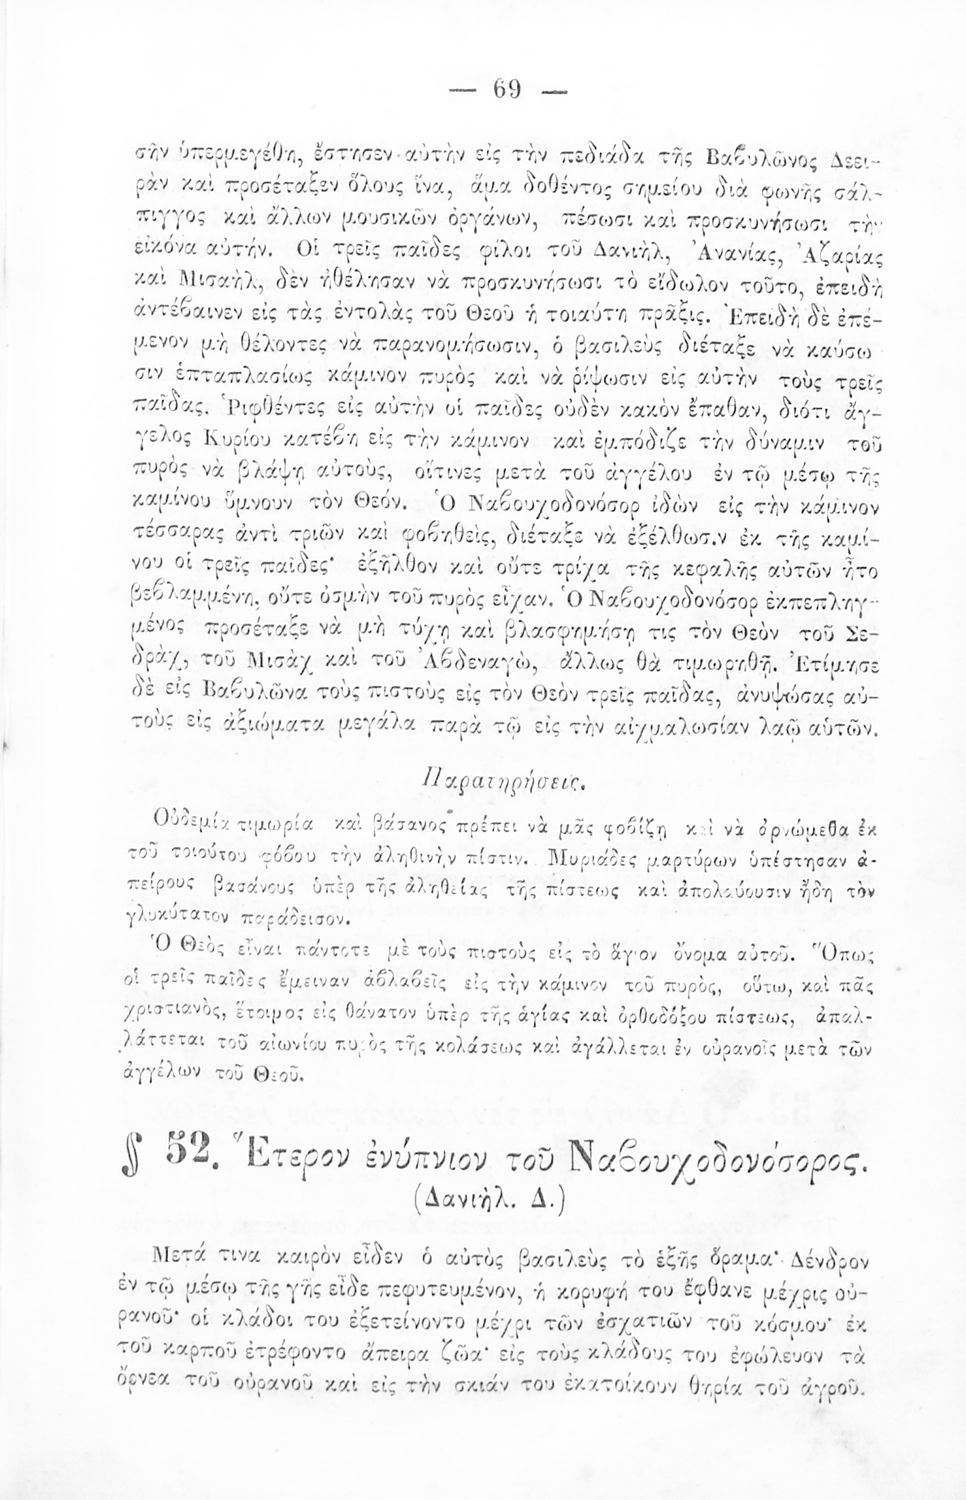 — 69 —
σῆν ὑπερμεγέθη, ἔστησεν αὐτὴν εἰς τὴν πεδιάδα τῆς Βαβυλῶνος Δεει-
ρὰν καὶ προσέταξεν ὅλους ἵνα, ἅμα δοθέντος σημείου διὰ φωνῆς σάλ-
πιγγος καὶ ἄλλων μουσικῶν ὀργάνων, πέσωσι καὶ προσκυνήσωσι τὴν
εἰκόνα αὐτήν. Οἱ τρεῖς παῖδες φίλοι τοῦ Δανιὴλ, Ἀνανίας, Ἀζαρίας
καὶ Μισαὴλ, δὲν ἠθέλησαν νὰ προσκυνήσωσι τὸ εἴδωλον τοῦτο, ἐπειδὴ
ἀντέβαινεν εἰς τὰς ἐντολὰς τοῦ Θεοῦ ἡ τοιαύτη πρᾶξις. Ἐπειδὴ δὲ ἐπέ-
μενον μὴ θέλοντες νὰ παρανομήσωσιν, ὁ βασιλεὺς διέταξε νὰ καύσω
σιν ἑπταπλασίως κάμινον πυρὸς καὶ νὰ ῥίψωσιν εἰς αὐτὴν τοὺς τρεῖς
παῖδας. Ῥιφθέντες εἰς αὐτὴν οἱ παῖδες οὐδὲν κακὸν ἔπαθαν, διότι ἄγ-
γελος Κυρίου κατέβη εἰς τὴν κάμινον καὶ ἐμπόδιζε τὴν δύναμιν τοῦ
πυρὸς νὰ βλάψῃ αὐτοὺς, οἵτινες μετὰ τοῦ ἀγγέλου ἐν τῷ μέσῳ τῆς
καμίνου ὕμνουν τὸν Θεόν. Ὁ Ναβουχοδονόσορ ἰδὼν εἰς τὴν κάμινον
τέσσαρας ἀντὶ τριῶν καὶ φοβηθεὶς, διέταξε νὰ ἐξέλθωσιν ἐκ τῆς καμί-
νου οἱ τρεῖς παῖδες· ἐξῆλθον καὶ οὔτε τρίχα τῆς κεφαλῆς αὐτῶν ἦτο
βεβλαμμένη, οὔτε ὀσμὴν τοῦ πυρὸς εἶχαν. Ὁ Ναβουχοδονόσορ ἐκπεπληγ-
μένος προσέταξε νὰ μὴ τύχῃ καὶ βλασφημήσῃ τις τὸν Θεὸν τοῦ Σε-
δρὰχ, τοῦ Μισὰχ καὶ τοῦ Ἀβδεναγὼ, ἄλλως θὰ τιμωρηθῇ. Ἐτίμησε
δὲ εἰς Βαβυλῶνα τοὺς πιστοὺς εἰς τὸν Θεὸν τρεῖς παῖδας, ἀνυψώσας αὐ-
τοὺς εἰς ἀξιώματα μεγάλα παρὰ τῷ εἰς τὴν αἰχμαλωσίαν λαῷ αὑτῶν.
Παρατηρήσεις.
Οὐδεμία τιμωρία καὶ βάσανος πρέπει νὰ μᾶς φοβίζῃ καὶ νὰ ἀρνώμεθα ἐκ
τοῦ τοιούτου φόβου τὴν ἀληθινὴν πίστιν. Μυριάδες μαρτύρων ὑπέστησαν ἀ-
πείρους βασάνους ὑπὲρ τῆς ἀληθείας τῆς πίστεως καὶ ἀπολαύουσιν ἤδη τὸν
γλυκύτατον παράδεισον.
Ὁ Θεὸς εἶναι πάντοτε μὲ τοὺς πιστοὺς εἰς τὸ ἅγιον ὄνομα αὐτοῦ. Ὅπως
οἱ τρεῖς παῖδες ἔμειναν ἀβλαβεῖς εἰς τὴν κάμινον τοῦ πυρὸς, οὕτω, καὶ πᾶς
χριστιανὸς, ἕτοιμος εἰς θάνατον ὑπὲρ τῆς ἁγίας καὶ ὀρθοδόξου πίστεως, ἀπαλ-
λάττεται τοῦ αἰωνίου πυρὸς τῆς κολάσεως καὶ ἀγάλλεται ἐν οὐρανοῖς μετὰ τῶν
ἀγγέλων τοῦ Θεοῦ.
§ 52. Ἕτερον ἐνύπνιον τοῦ Ναβουχοδονόσορος.
(Δανιὴλ. Δ.)
Μετά τινα καιρὸν εἶδεν ὁ αὐτὸς βασιλεὺς τὸ ἑξῆς ὅραμα· Δένδρον
ἐν τῷ μέσῳ τῆς γῆς εἶδε πεφυτευμένον, ἡ κορυφή του ἔφθανε μέχρις οὐ-
ρανοῦ· οἱ κλάδοι του ἐξετείνοντο μέχρι τῶν ἐσχατιῶν τοῦ κόσμου· ἐκ
τοῦ καρποῦ ἐτρέφοντο ἄπειρα ζῶα· εἰς τοὺς κλάδους του ἐφώλευον τὰ
ὄρνεα τοῦ οὐρανοῦ καὶ εἰς τὴν σκιάν του ἐκατοίκουν θηρία τοῦ ἀγροῦ.